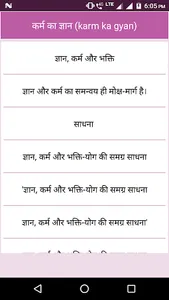 LTE 6:05 PM
कर्म का ज्ञान (karm ka gyan)
ज्ञान, कर्म और भक्ति
ज्ञान और कर्म का समन्वय ही मोक्ष-मार्ग है।
साधना
ज्ञान, कर्म और भक्ति-योग की समग्र साधना
'ज्ञान, कर्म और भक्ति-योग की समग्र साधना
ज्ञान, कर्म और भक्ति-योग की समग्र साधना'